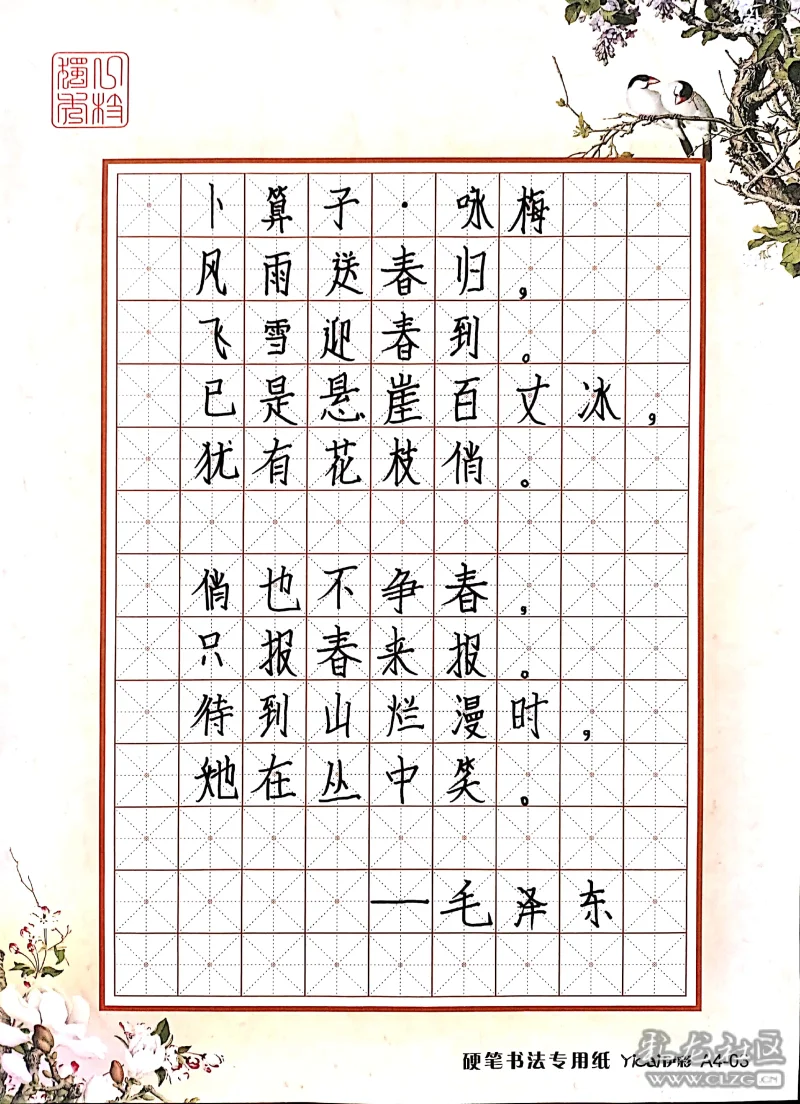 卜算子·咏梅
风雨送春归，
飞雪迎春到。
已是悬崖百丈冰，
犹有花枝俏。
俏也不争春，
只报春来报。
待到山烂漫时，
她在丛中笑。
—毛泽东
硬笔书法专用纸 伊彩 A4-03
社区